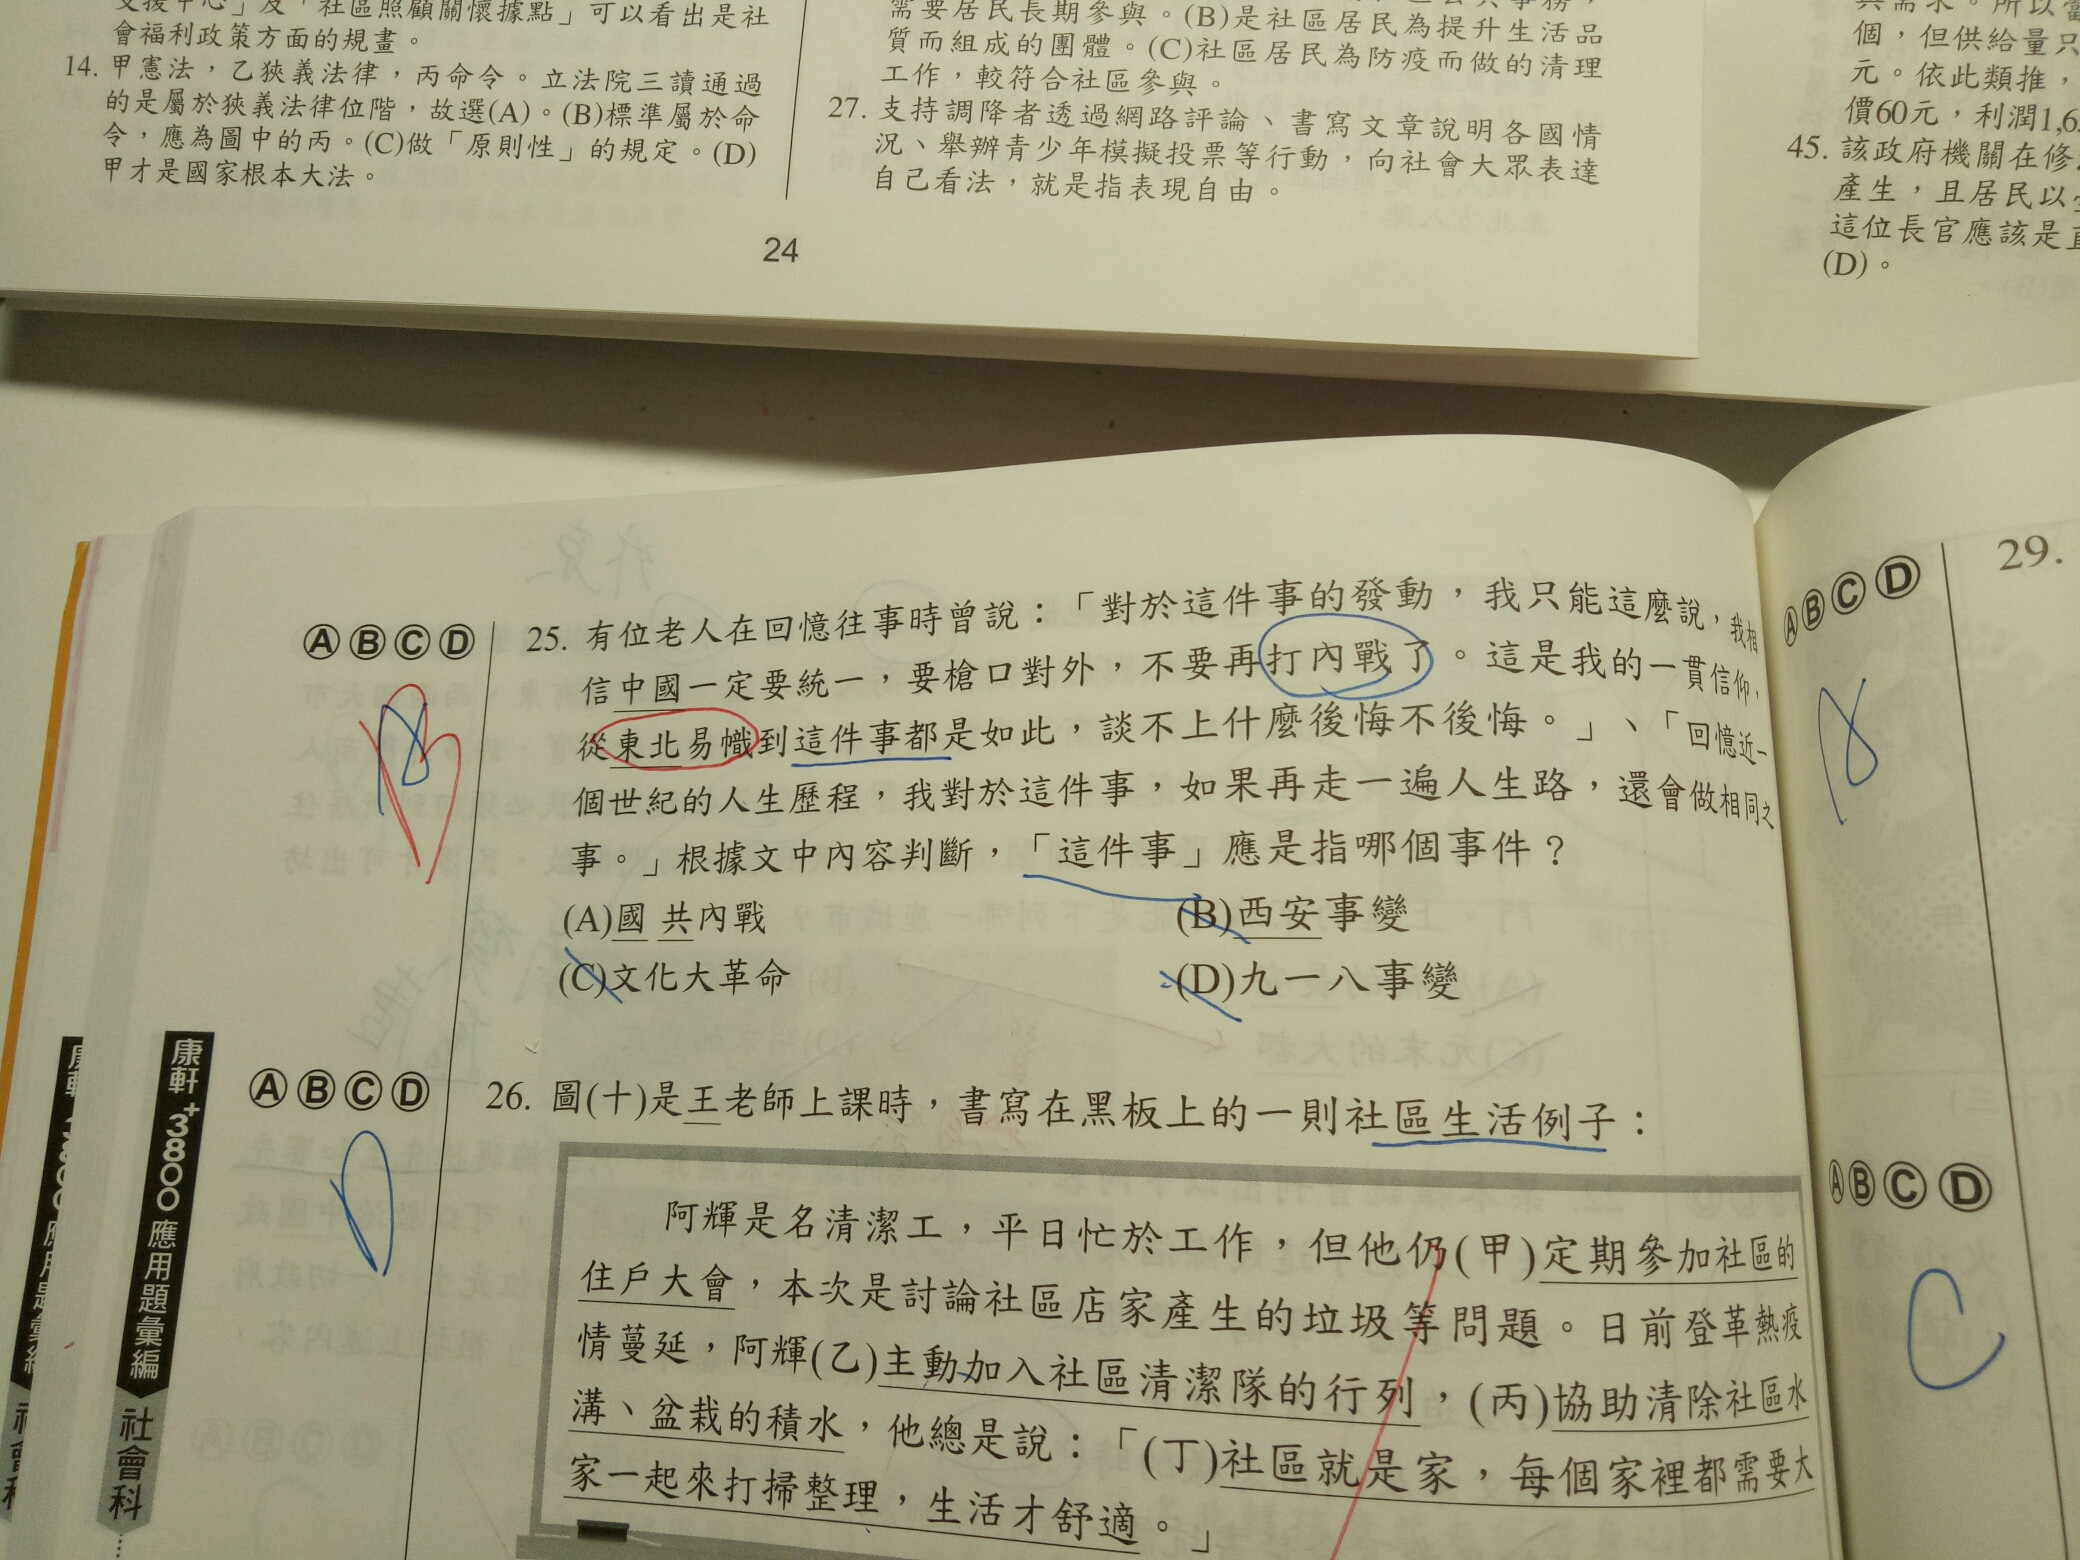 支援中心」及「社區照顧關懷據點」可以看出是社
會福利政策方面的規畫。
14. 甲憲法，乙狹義法律，丙命令。立法院三讀通過
的是屬於狹義法律位階，故選(A)。(B)標準屬於命
令，應為圖中的丙。(C)做「原則性」的規定。(D)
甲才是國家根本大法。
需要居民長期參與。(B)是社區居民為提升生活品
質而組成的團體。(C)社區居民為防疫而做的清理
工作，較符合社區參與。
27. 支持調降者透過網路評論、書寫文章說明各國情
況、舉辦青少年模擬投票等行動，向社會大眾表達
自己看法，就是指表現自由。
24
與需求。所以當
個，但供給量只
元。依此類推，
價60元，利潤1,6
45. 該政府機關在修
產生，且居民以
這位長官應該是
(D)。
ⒶⒷⒸⒹ
25. 有位老人在回憶往事時曾說：「對於這件事的發動，我只能這麼說，我相
信中國一定要統一，要槍口對外，不要再打內戰了。這是我的一貫信仰，
從東北易幟到這件事都是如此，談不上什麼後悔不後悔。」、「回憶近一
個世紀的人生歷程，我對於這件事，如果再走一遍人生路，還會做相同之
事。」根據文中內容判斷，「這件事」應是指哪個事件？
(A)國共內戰
(B)西安事變
(C)文化大革命
(D)九一八事變
B
ⒶⒷⒸⒹ
26. 圖(十)是王老師上課時，書寫在黑板上的一則社區生活例子：
D
阿輝是名清潔工，平日忙於工作，但他仍(甲)定期參加社區的
住戶大會，本次是討論社區店家產生的垃圾等問題。日前登革熱疫
情蔓延，阿輝(乙)主動加入社區清潔隊的行列，(丙)協助清除社區水
溝、盆栽的積水，他總是說：「(丁)社區就是家，每個家裡都需要大
家一起來打掃整理，生活才舒適。」
康軒
+3800
應用題彙編
社會科
ⒶⒷⒸⒹ
29.
ⒶⒷⒸⒹ
C